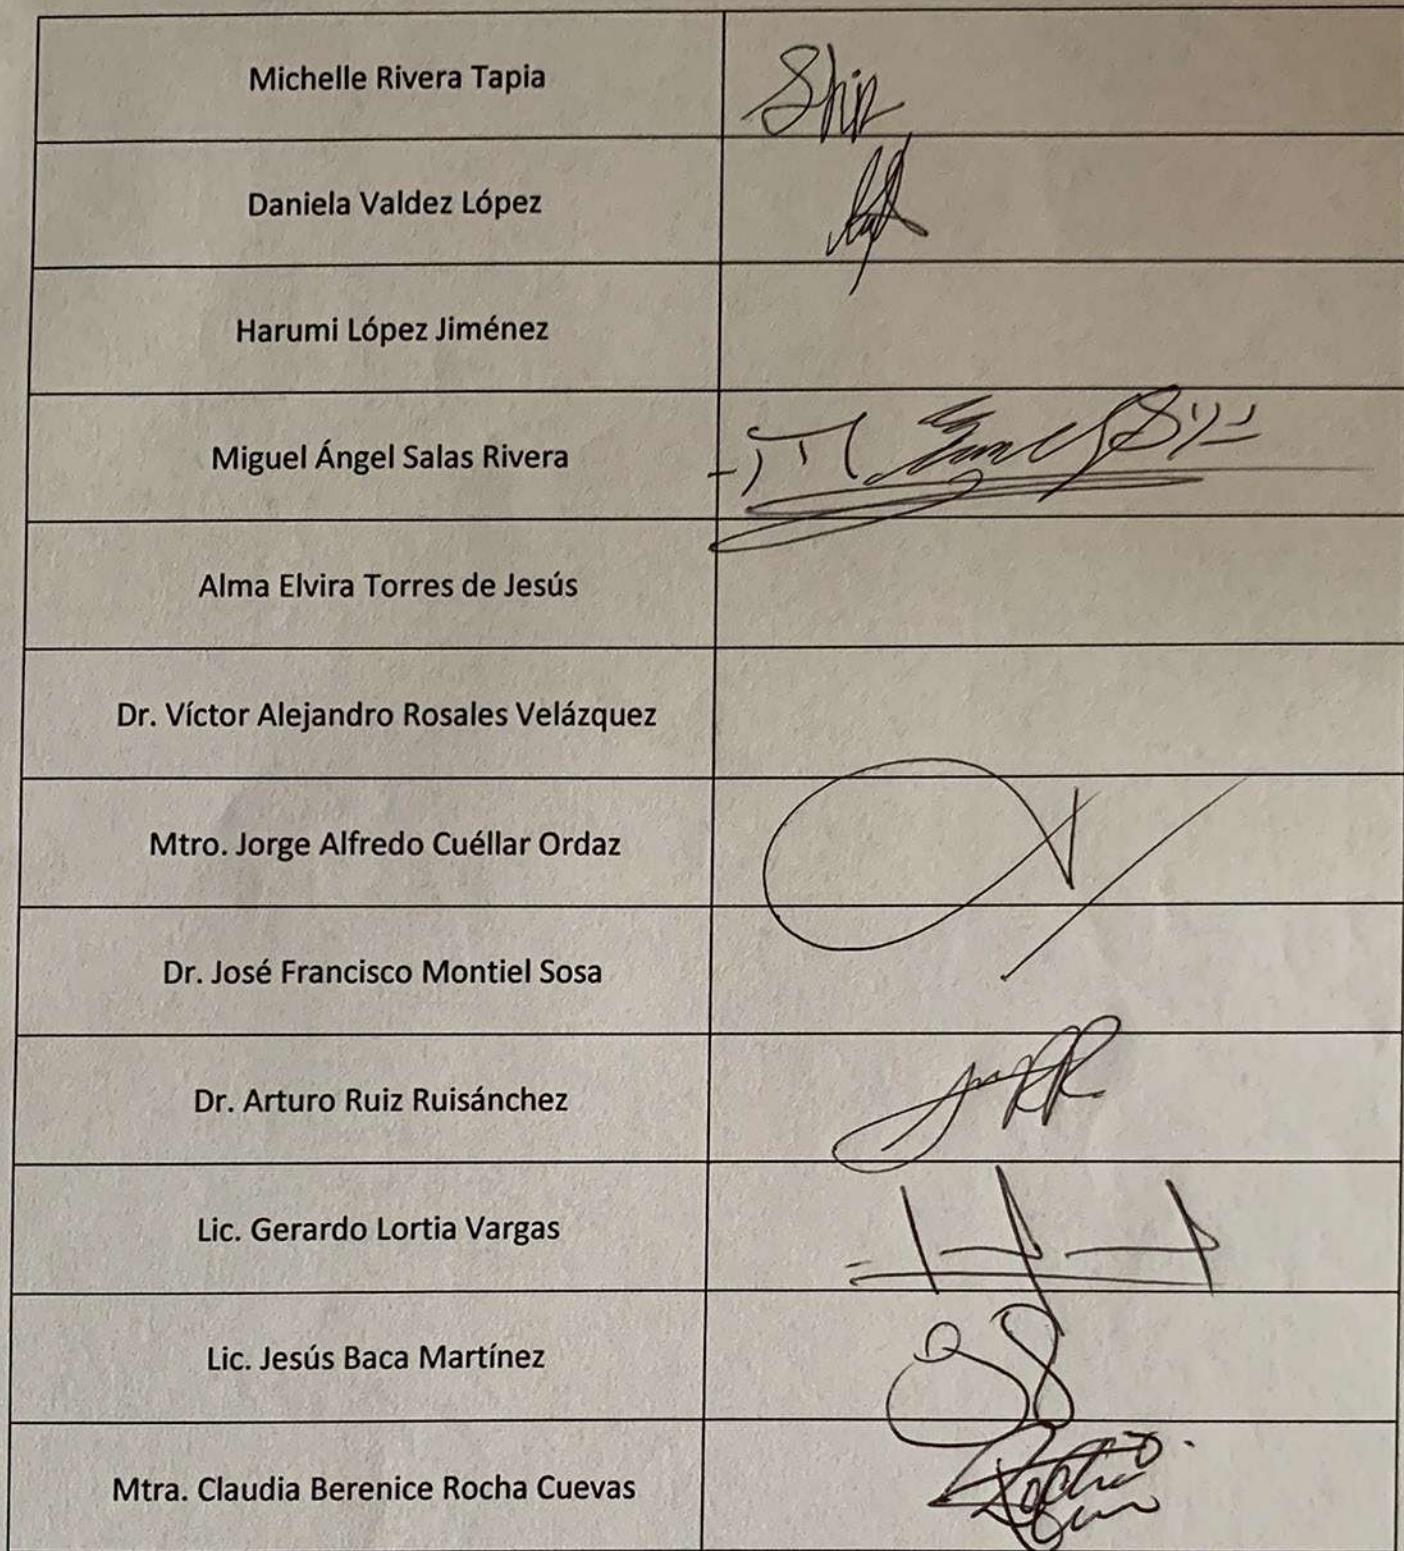 Michelle Rivera Tapia
Daniela Valdez López
Harumi López Jiménez
Miguel Ángel Salas Rivera
Alma Elvira Torres de Jesús
Dr. Víctor Alejandro Rosales Velázquez
Mtro. Jorge Alfredo Cuéllar Ordaz
Dr. José Francisco Montiel Sosa
Dr. Arturo Ruiz Ruisánchez
Lic. Gerardo Lortia Vargas
Lic. Jesús Baca Martínez
Mtra. Claudia Berenice Rocha Cuevas